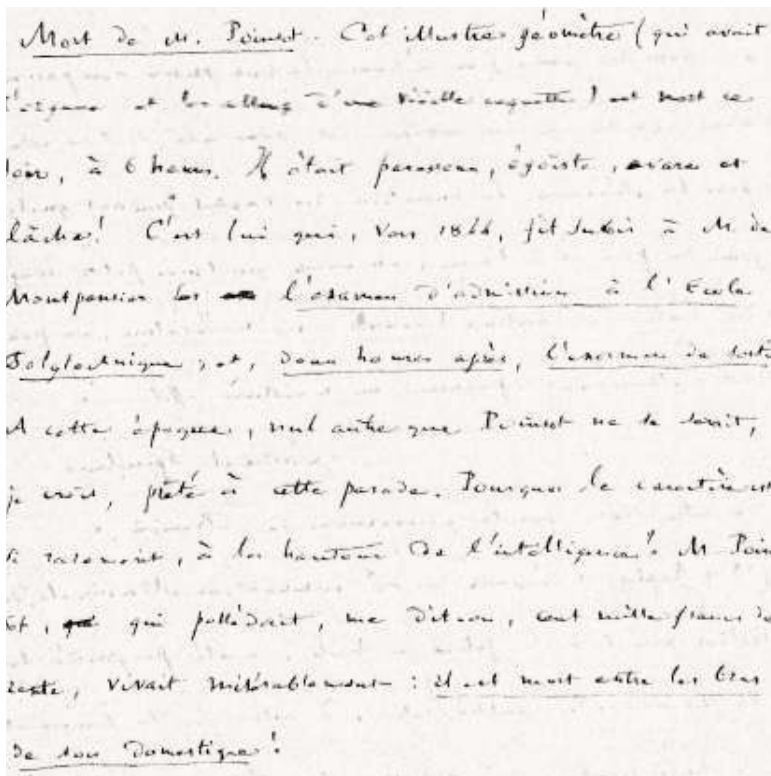 Mort de M. Poinsot. Cet illustre géomètre (qui avait
l'organe et les allures d'une vieille coquette) est mort ce
soir, à 6 heures. Il était paresseux, égoïste, avare et
lâche! C'est lui qui, vers 1844, fit subir à M. de
Montpensier l'examen d'admission à l'Ecole
Polytechnique; et, deux heures après, l'examen de sortie
A cette époque, nul autre que Poinsot ne se serait,
je crois, prêté à cette parade. Pourquoi le caractère est
si rarement, à la hauteur de l'intelligence! M. Poin
sot, qui possédait, me dit-on, cent mille francs de
rente, vivait misérablement : il est mort entre les bras
de son domestique!